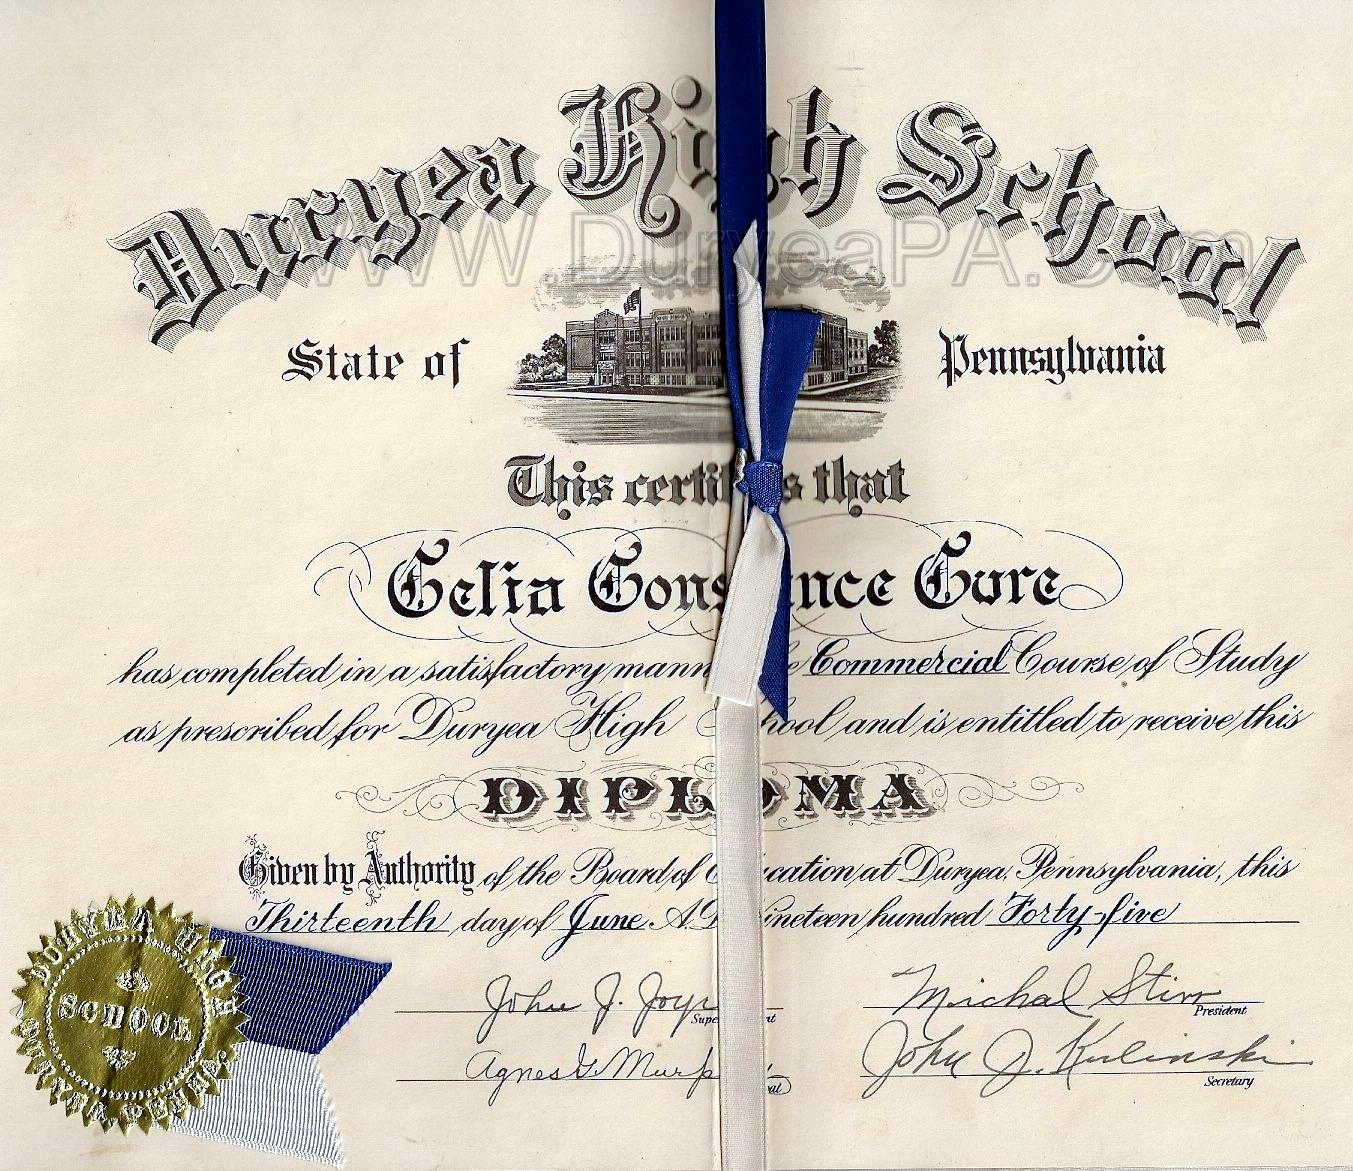 Duryea High School
WWW.DuryeaPA.Com
State of Pennsylvania
This certi s that
Celia Cons nce Cure
has completed in a satisfactory mann e Commercial Course of Study
as prescribed for Duryea High hool and is entitled to receive this
DIPLOMA
Given by Authority of the Board of cation at Duryea, Pennsylvania, this
Thirteenth day of June A.D. ineteen hundred Forty-five
John J. Joy
Supe nt
Michal
President
Agnes G. Murp
al
John J. Kulinski
Secretary
DURYEA HIGH
SCHOOL
DURYEA PENNA.